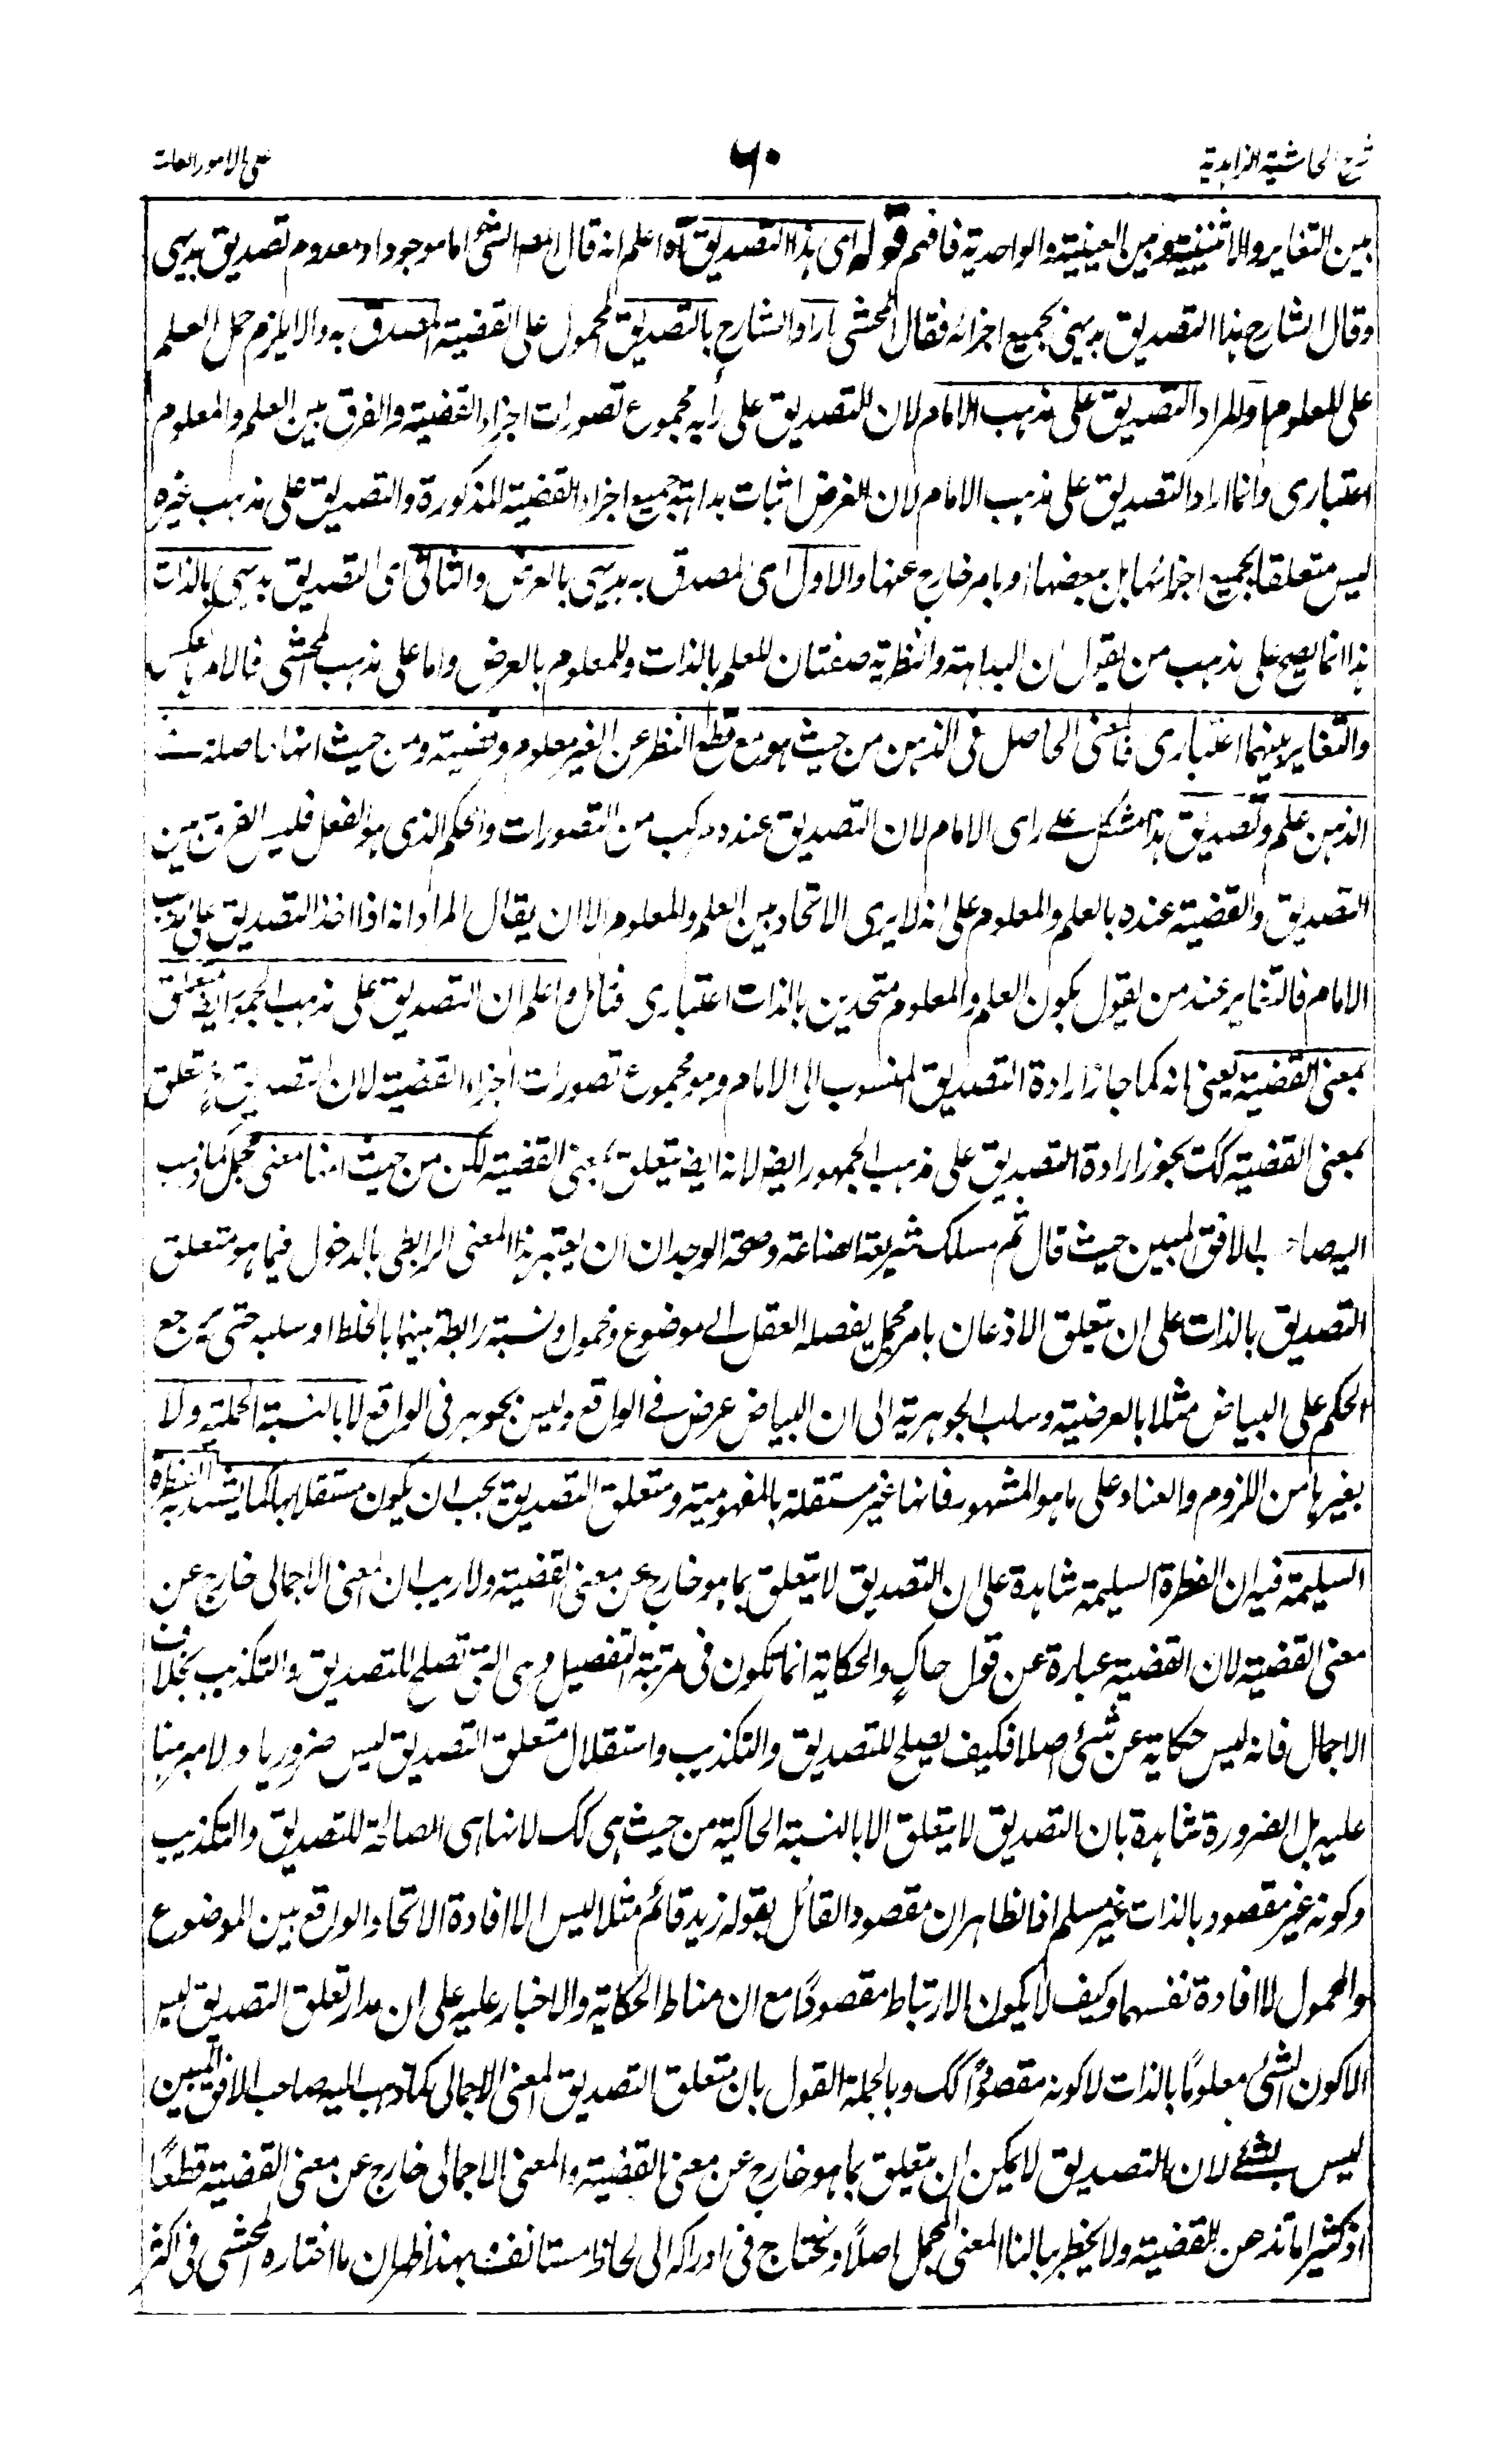 شرح الحاشية الزاهدية
٦٠
على الامور العامة
بين التغاير والاثنينية وبين العينية والواحدية فافهم قوله اى هذا التصديق آه اعلم انه قال المص الشئ اما موجود او معدوم تصديق بديهى
وقال الشارح هذا التصديق بديهى بجميع اجزائه فقال المحشى اراد الشارح بالتصديق المحمول على القضية المصدق به والا يلزم حمل العلم
على المعلوم او المراد التصديق على مذهب الامام لان التصديق على رأيه مجموع تصورات اجزاء القضية والفرق بين العلم والمعلوم
اعتبارى وانما اراد التصديق على مذهب الامام لان الغرض اثبات بداهة جميع اجزاء القضية المذكورة والتصديق على مذهب غيره
ليس متعلقا بجميع اجزائها بل ببعضها او بامر خارج عنها والاول اى المصدق به بديهى بالعرض والثانى اى التصديق بديهى بالذات
هذا انما يصح على مذهب من يقول ان البداهة والنظرية صفتان للعلم بالذات وللمعلوم بالعرض واما على مذهب المحشى فالامر بالعكس
والتغاير بينهما اعتبارى فالمعنى الحاصل فى الذهن من حيث هو مع قطع النظر عن الغير معلوم وقضية ومن حيث انها حاصلة فى
الذهن علم وتصديق هذا مشكل على راى الامام لان التصديق عنده مركب من التصورات والحكم الذى هو الفعل فليس الفرق بين
التصديق والقضية عنده بالعلم والمعلوم على انه لا يرى الاتحاد بين العلم والمعلوم الا ان يقال المراد انه اذا اخذ التصديق على مذهب
الامام فالتغاير عند من يقول بكون العلم والمعلوم متحدين بالذات اعتبارى فتامل واعلم ان التصديق على مذهب الجمهور ايضا متعلق
بمعنى القضية يعنى انه كما جاز ارادة التصديق المنسوب الى الامام وهو مجموع تصورات اجزاء القضية لان التصديق تعلق
بمعنى القضية كك يجوز ارادة التصديق على مذهب الجمهور ايض لانه ايض يتعلق بمعنى القضية لكن من حيث انها معنى مجمل كما ذهب
اليه صاحب الافق المبين حيث قال ثم مسلك شريعة الصناعة وصحة الوجدان ان يعتبر هذا المعنى الرابطى بالدخول فيما هو متعلق
التصديق بالذات على ان يتعلق الاذعان بامر مجمل يفصله العقل الى موضوع ومحمول ونسبة رابطة بينهما بالخلط او سلبه حتى يرجع
الحكم على البياض مثلا بالعرضية وسلب الجوهرية الى ان البياض عرض فى الواقع وليس بجوهر فى الواقع لا بالنسبة الحملية ولا
بغيرها من اللزوم والعناد على ما هو المشهور فانها غير مستقلة بالمفهومية ومتعلق التصديق يجب ان يكون مستقلا بها كما يشهد به الفطرة
السليمة فيه ان الفطرة السليمة شاهدة على ان التصديق لا يتعلق بما هو خارج عن معنى القضية ولا ريب ان المعنى الاجمالى خارج عن
معنى القضية لان القضية عبارة عن قول حاكٍ والحكاية انما تكون فى مرتبة التفصيل وهى التى تصلح للتصديق والتكذيب بخلاف
الاجمال فانه ليس حكاية عن شئ اصلا فكيف يصلح للتصديق والتكذيب واستقلال متعلق التصديق ليس ضروريا ولا مبرهنا
عليه بل الضرورة شاهدة بان التصديق لا يتعلق الا بالنسبة الحاكية من حيث هى كك لانها هى الصالحة للتصديق والتكذيب
وكونه غير مقصود بالذات غير مسلم اذ الظاهر ان مقصود القائل بقوله زيد قائم مثلا ليس الا افادة الاتحاد الواقع بين الموضوع
والمحمول لا افادة نفسهما وكيف لا يكون الارتباط مقصودًا مع ان مناط الحكاية والاخبار عليه على ان مدار تعلق التصديق ليس
الا كون الشئ معلومًا بالذات لا كونه مقصودًا كك وبالجملة القول بان متعلق التصديق المعنى الاجمالى كما ذهب اليه صاحب الافق المبين
ليس بشئ لان التصديق لا يمكن ان يتعلق بما هو خارج عن معنى القضية والمعنى الاجمالى خارج عن معنى القضية قطعًا
اذ كثيرا ما تذعن للقضية ولا يخطر ببالنا المعنى المجمل اصلاً ونحتاج فى ادراكه الى لحاظ مستانف فبهذا ظهر ان ما اختاره المحشى فى اكثر